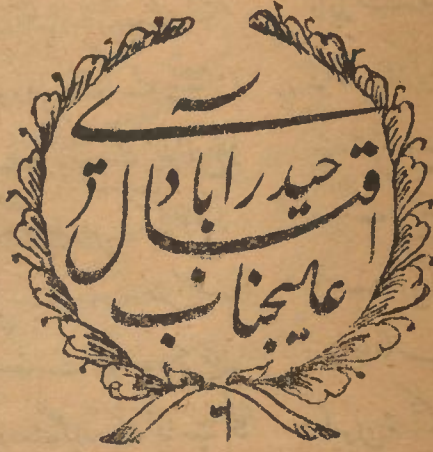 عالیجناب
اقبال
حیدرابادی
٦